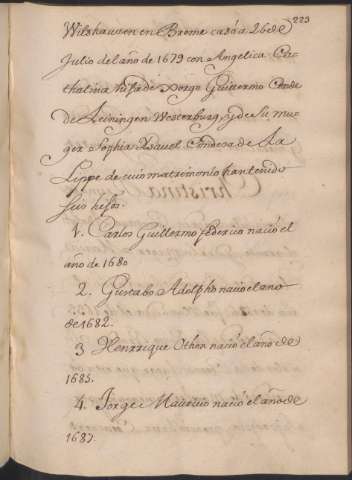 223
Wilshausen en Breme casó a 26 de
Julio del año de 1679 con Angelica Ca-
thalina hija de Jorge Guillermo Conde
de Leiningen Westerburg, y de Su mu-
ger Sophia Ysavel Condesa de La
Lippe de cuio matrimonio han tenido
seis hijos.
1. Carlos Guillermo federico nació el
año de 1680
2. Gustabo Adolpho nacio el año
de 1682.
3 Henrrique Othon nació el año de
1685.
4. Jorge Mauricio nació el año de
1687.